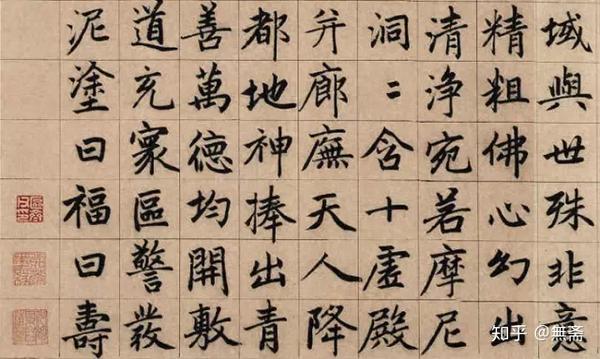 域與世殊非意
精粗佛心幻出
清淨宛若摩尼
洞〻含十虛殿
并廊廡天人降
都地神捧出青
善萬德均開敷
道充寰區警發
泥塗曰福曰壽
知乎 @無斋